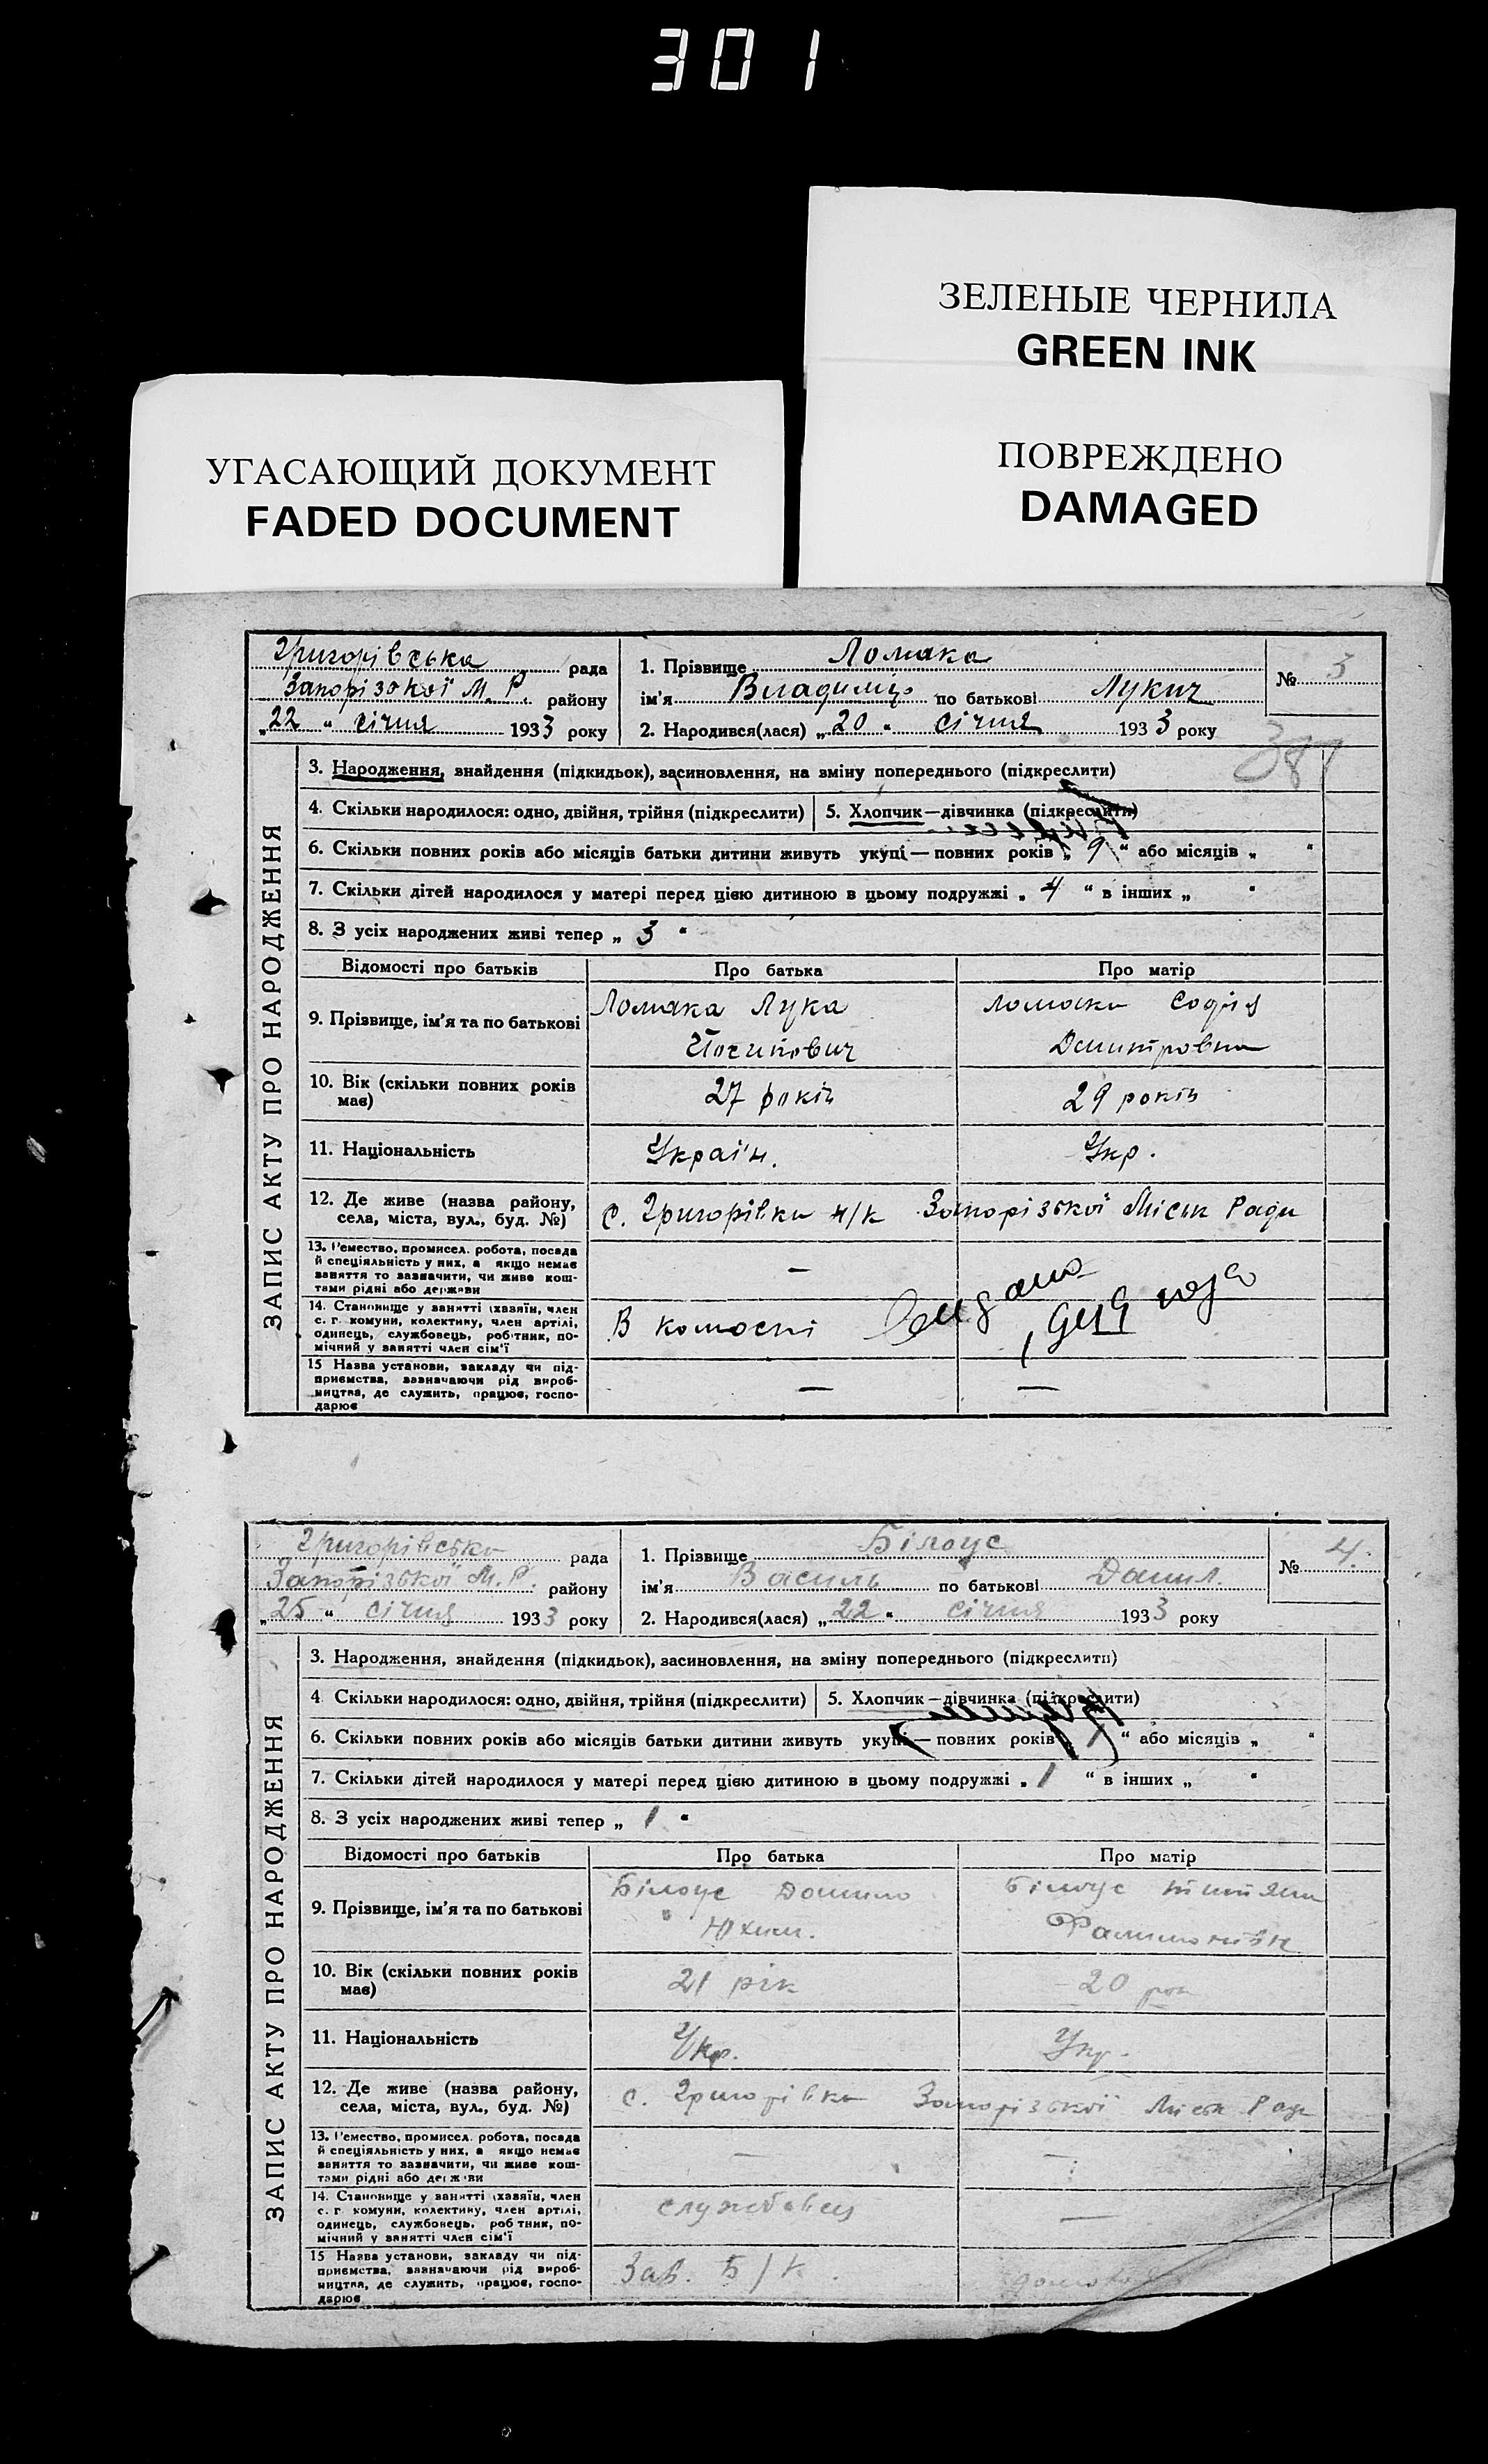 301
ЗЕЛЕНЫЕ ЧЕРНИЛА
GREEN INK
ПОВРЕЖДЕНО
DAMAGED
УГАСАЮЩИЙ ДОКУМЕНТ
FADED DOCUMENT
Григорівська рада
Запорізської М. Р. району
„22“ січня 1933 року
1. Прізвище Ломака
ім'я Владимір по батькові Лукич
2. Народився(лася) „20“ січня 1933 року
№ 3
381
ЗАПИС АКТУ ПРО НАРОДЖЕННЯ
3. Народження, знайдення (підкидьок), засиновлення, на зміну попереднього (підкреслити)
4. Скільки народилося: одно, двійня, трійня (підкреслити) 5. Хлопчик—дівчинка (підкреслити)
6. Скільки повних років або місяців батьки дитини живуть укупі—повних років „9“ або місяців „ “
7. Скільки дітей народилося у матері перед цією дитиною в цьому подружжі „4“ в інших „ “
8. З усіх народжених живі тепер „3“
Відомості про батьків Про батька Про матір
9. Прізвище, ім'я та по батькові Ломака Лука Ломака Софія
Дмитровна
10. Вік (скільки повних років має) 27 років 29 років
11. Національність Україн. Укр.
12. Де живе (назва району, села, міста, вул., буд. №) с. Григорівка н/к Запорізької Міськ Ради
13. Ремество, промисел. робота, посада й спеціяльність у них, а якщо немає заняття то зазначити, чи живе коштами рідні або держави —
14. Становище у занятті (хазяїн, член с. г. комуни, колективу, член артілі, одинець, службовець, робітник, помічний у занятті член сім'ї В
15 Назва установи, закладу чи підприємства, зазначаючи рід виробництва, де служить, працює, господарює — —
Григорівська рада
Запорізької М. Р. району
„25“ січня 1933 року
1. Прізвище Білоус
ім'я Василь по батькові Данил.
2. Народився(лася) „22“ січня 1933 року
№ 4.
ЗАПИС АКТУ ПРО НАРОДЖЕННЯ
3. Народження, знайдення (підкидьок), засиновлення, на зміну попереднього (підкреслити)
4. Скільки народилося: одно, двійня, трійня (підкреслити) 5. Хлопчик—дівчинка (підкреслити)
6. Скільки повних років або місяців батьки дитини живуть укупі—повних років „ “ або місяців „ “
7. Скільки дітей народилося у матері перед цією дитиною в цьому подружжі „1“ в інших „ “
8. З усіх народжених живі тепер „1“
Відомості про батьків Про батька Про матір
9. Прізвище, ім'я та по батькові Білоус Данило Білоус Титяна
Юхим.
10. Вік (скільки повних років має) 21 рік 20 рок
11. Національність Укр. Укр.
12. Де живе (назва району, села, міста, вул., буд. №) с. Григорівка Запорізької Міськ Ради
13. Ремество, промисел. робота, посада й спеціяльність у них, а якщо немає заняття то зазначити, чи живе коштами рідні або держави — —
14. Становище у занятті (хазяїн, член с. г. комуни, колективу, член артілі, одинець, службовець, робітник, помічний у занятті член сім'ї службовець —
15 Назва установи, закладу чи підприємства, зазначаючи рід виробництва, де служить, працює, господарює Зав. Б/К.